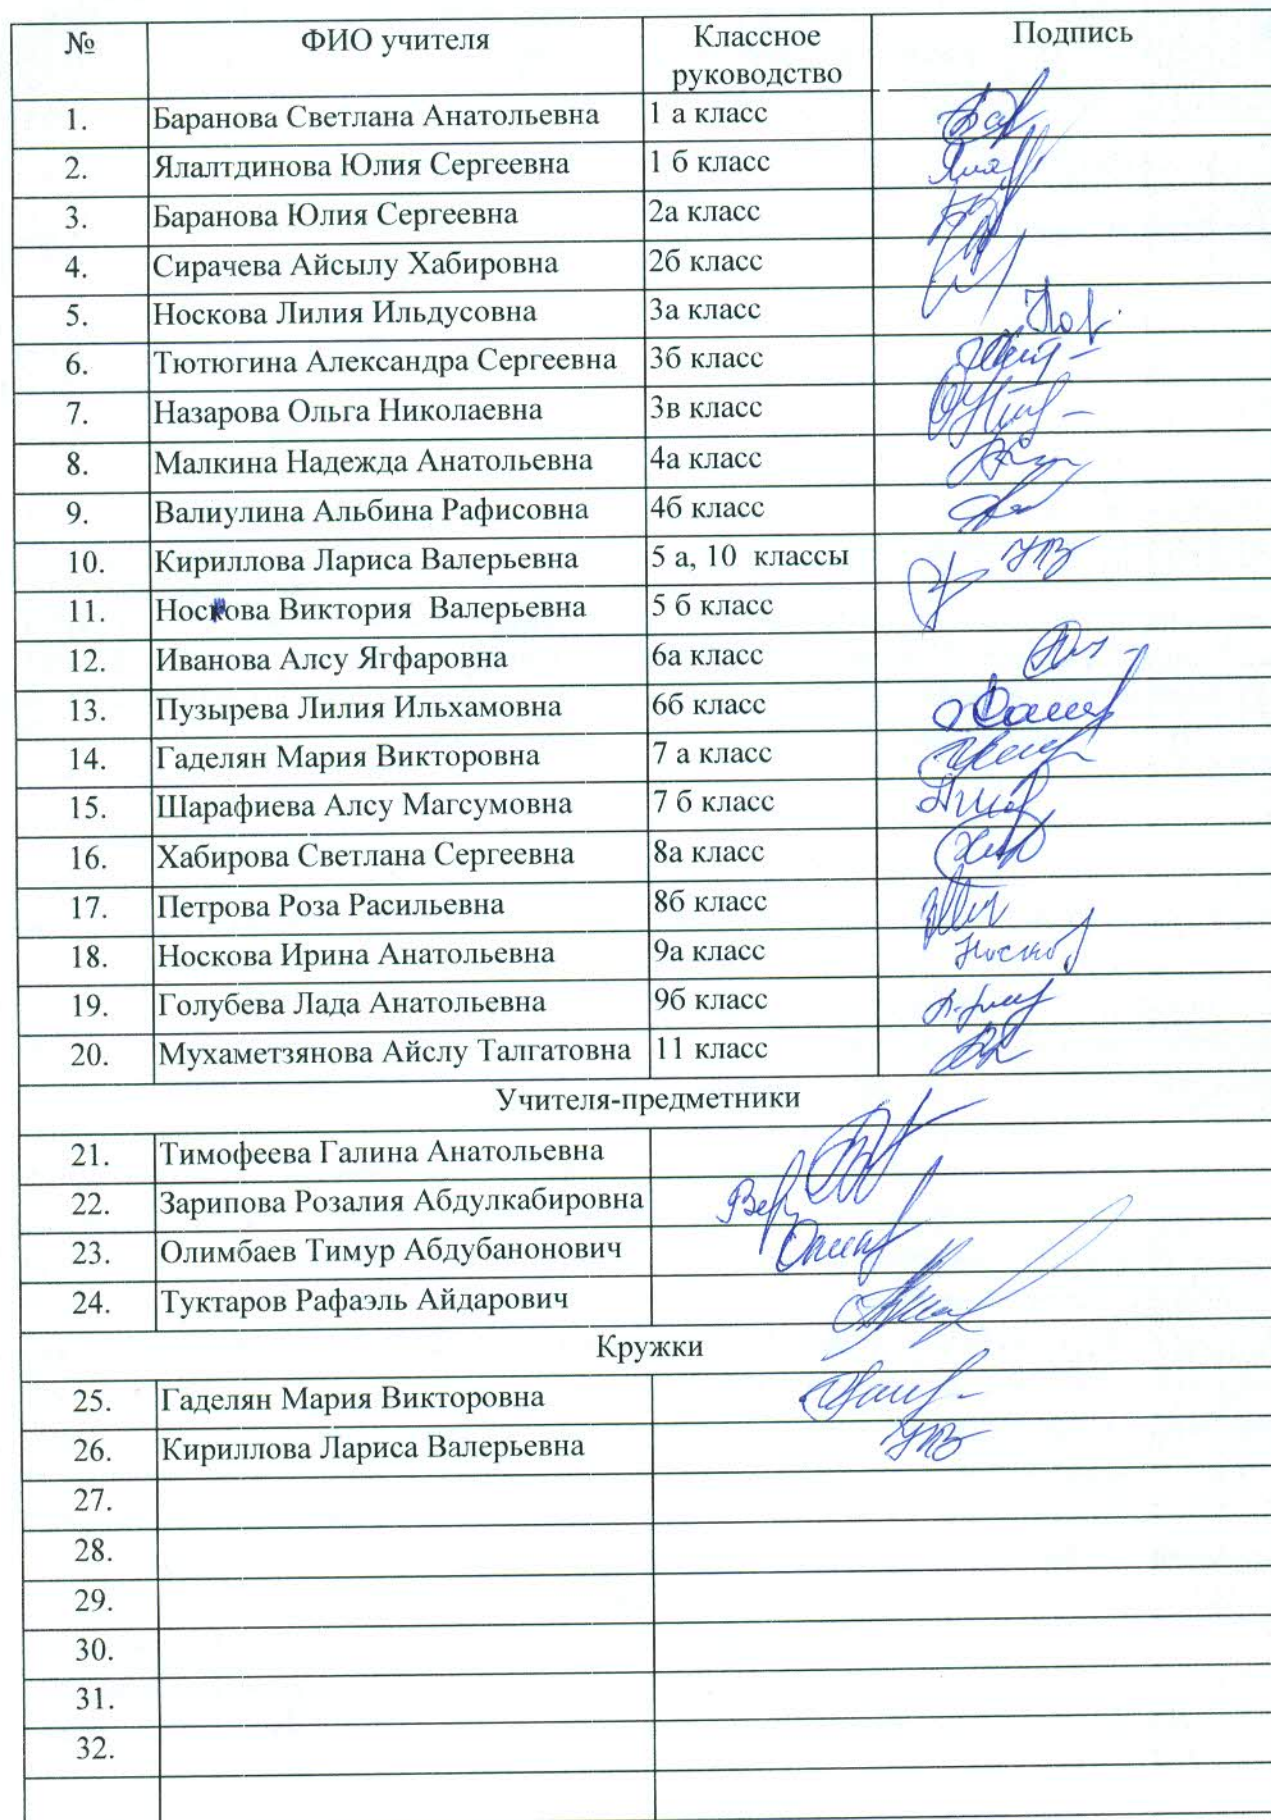 № ФИО учителя Классное Подпись
руководство
1. Баранова Светлана Анатольевна 1 а класс
2. Ялалтдинова Юлия Сергеевна 1 б класс
3. Баранова Юлия Сергеевна 2а класс
4. Сирачева Айсылу Хабировна 2б класс
5. Носкова Лилия Ильдусовна 3а класс
6. Тютюгина Александра Сергеевна 3б класс
7. Назарова Ольга Николаевна 3в класс
8. Малкина Надежда Анатольевна 4а класс
9. Валиулина Альбина Рафисовна 4б класс
10. Кириллова Лариса Валерьевна 5 а, 10 классы
11. Носкова Виктория Валерьевна 5 б класс
12. Иванова Алсу Ягфаровна 6а класс
13. Пузырева Лилия Ильхамовна 6б класс
14. Гаделян Мария Викторовна 7 а класс
15. Шарафиева Алсу Магсумовна 7 б класс
16. Хабирова Светлана Сергеевна 8а класс
17. Петрова Роза Расильевна 8б класс
18. Носкова Ирина Анатольевна 9а класс
19. Голубева Лада Анатольевна 9б класс
20. Мухаметзянова Айслу Талгатовна 11 класс
Учителя-предметники
21. Тимофеева Галина Анатольевна
22. Зарипова Розалия Абдулкабировна
23. Олимбаев Тимур Абдубанонович
24. Туктаров Рафаэль Айдарович
Кружки
25. Гаделян Мария Викторовна
26. Кириллова Лариса Валерьевна
27.
28.
29.
30.
31.
32.